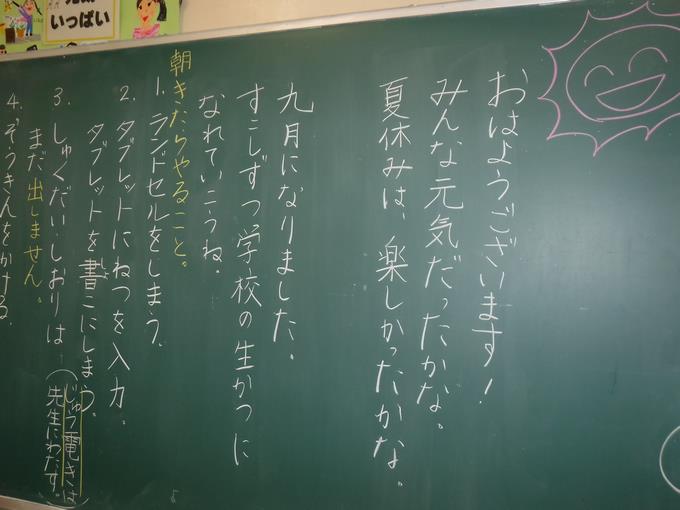 いっぱい
おはようございます！
みんな元気だったかな。
夏休みは、楽しかったかな。
九月になりました。
すこしずつ学校の生かつに
なれていこうね。
朝きたらやること。
1. ランドセルをしまう。
2. タブレットにねつを入力。
タブレットを書こにしまう。
（じゅう電きは
先生にわたす。）
3. しゅくだい・しおりは
まだ出しません。
4. ぞうきんをかける。